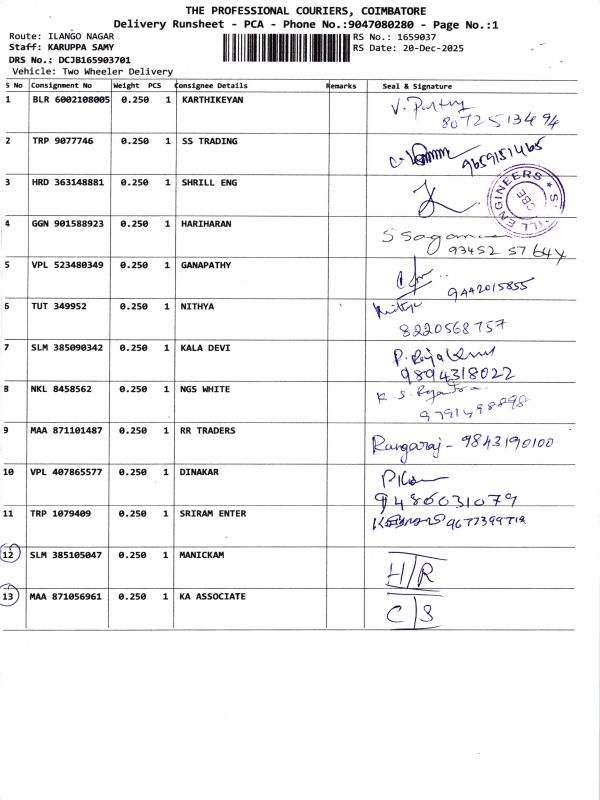 THE PROFESSIONAL COURIERS, COIMBATORE
Delivery Runsheet - PCA - Phone No.:9047080280 - Page No.:1
Route: ILANGO NAGAR RS No.: 1659037
Staff: KARUPPA SAMY RS Date: 20-Dec-2025
DRS No.: DCJB165903701
Vehicle: Two Wheeler Delivery
S No Consignment No Weight PCS Consignee Details Remarks Seal & Signature
1 BLR 6002108005 0.250 1 KARTHIKEYAN
8072513494
2 TRP 9077746 0.250 1 SS TRADING 9659151465
3 HRD 363148881 0.250 1 SHRILL ENG
ENGINEERS CBE
4 GGN 901588923 0.250 1 HARIHARAN
93452 57644
5 VPL 523480349 0.250 1 GANAPATHY
9442015855
6 TUT 349952 0.250 1 NITHYA Nithya
8220568757
7 SLM 385090342 0.250 1 KALA DEVI
9894318022
8 NKL 8458562 0.250 1 NGS WHITE
9791498898
9 MAA 871101487 0.250 1 RR TRADERS Rangaraj - 9843190100
10 VPL 407865577 0.250 1 DINAKAR
9486031079
11 TRP 1079409 0.250 1 SRIRAM ENTER
12 SLM 385105047 0.250 1 MANICKAM H/R
13 MAA 871056961 0.250 1 KA ASSOCIATE C|S